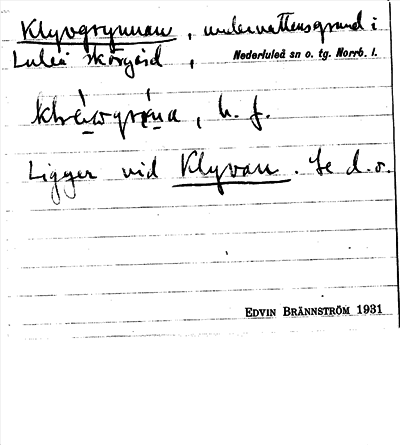 Klyvgrynnan, undervattensgrund i
Luleå skärgård, Nederluleå sn o. tg. Norrb. l.
b. f.
Ligger vid Klyvan. Se d.o.
EDVIN BRÄNNSTRÖM 1931